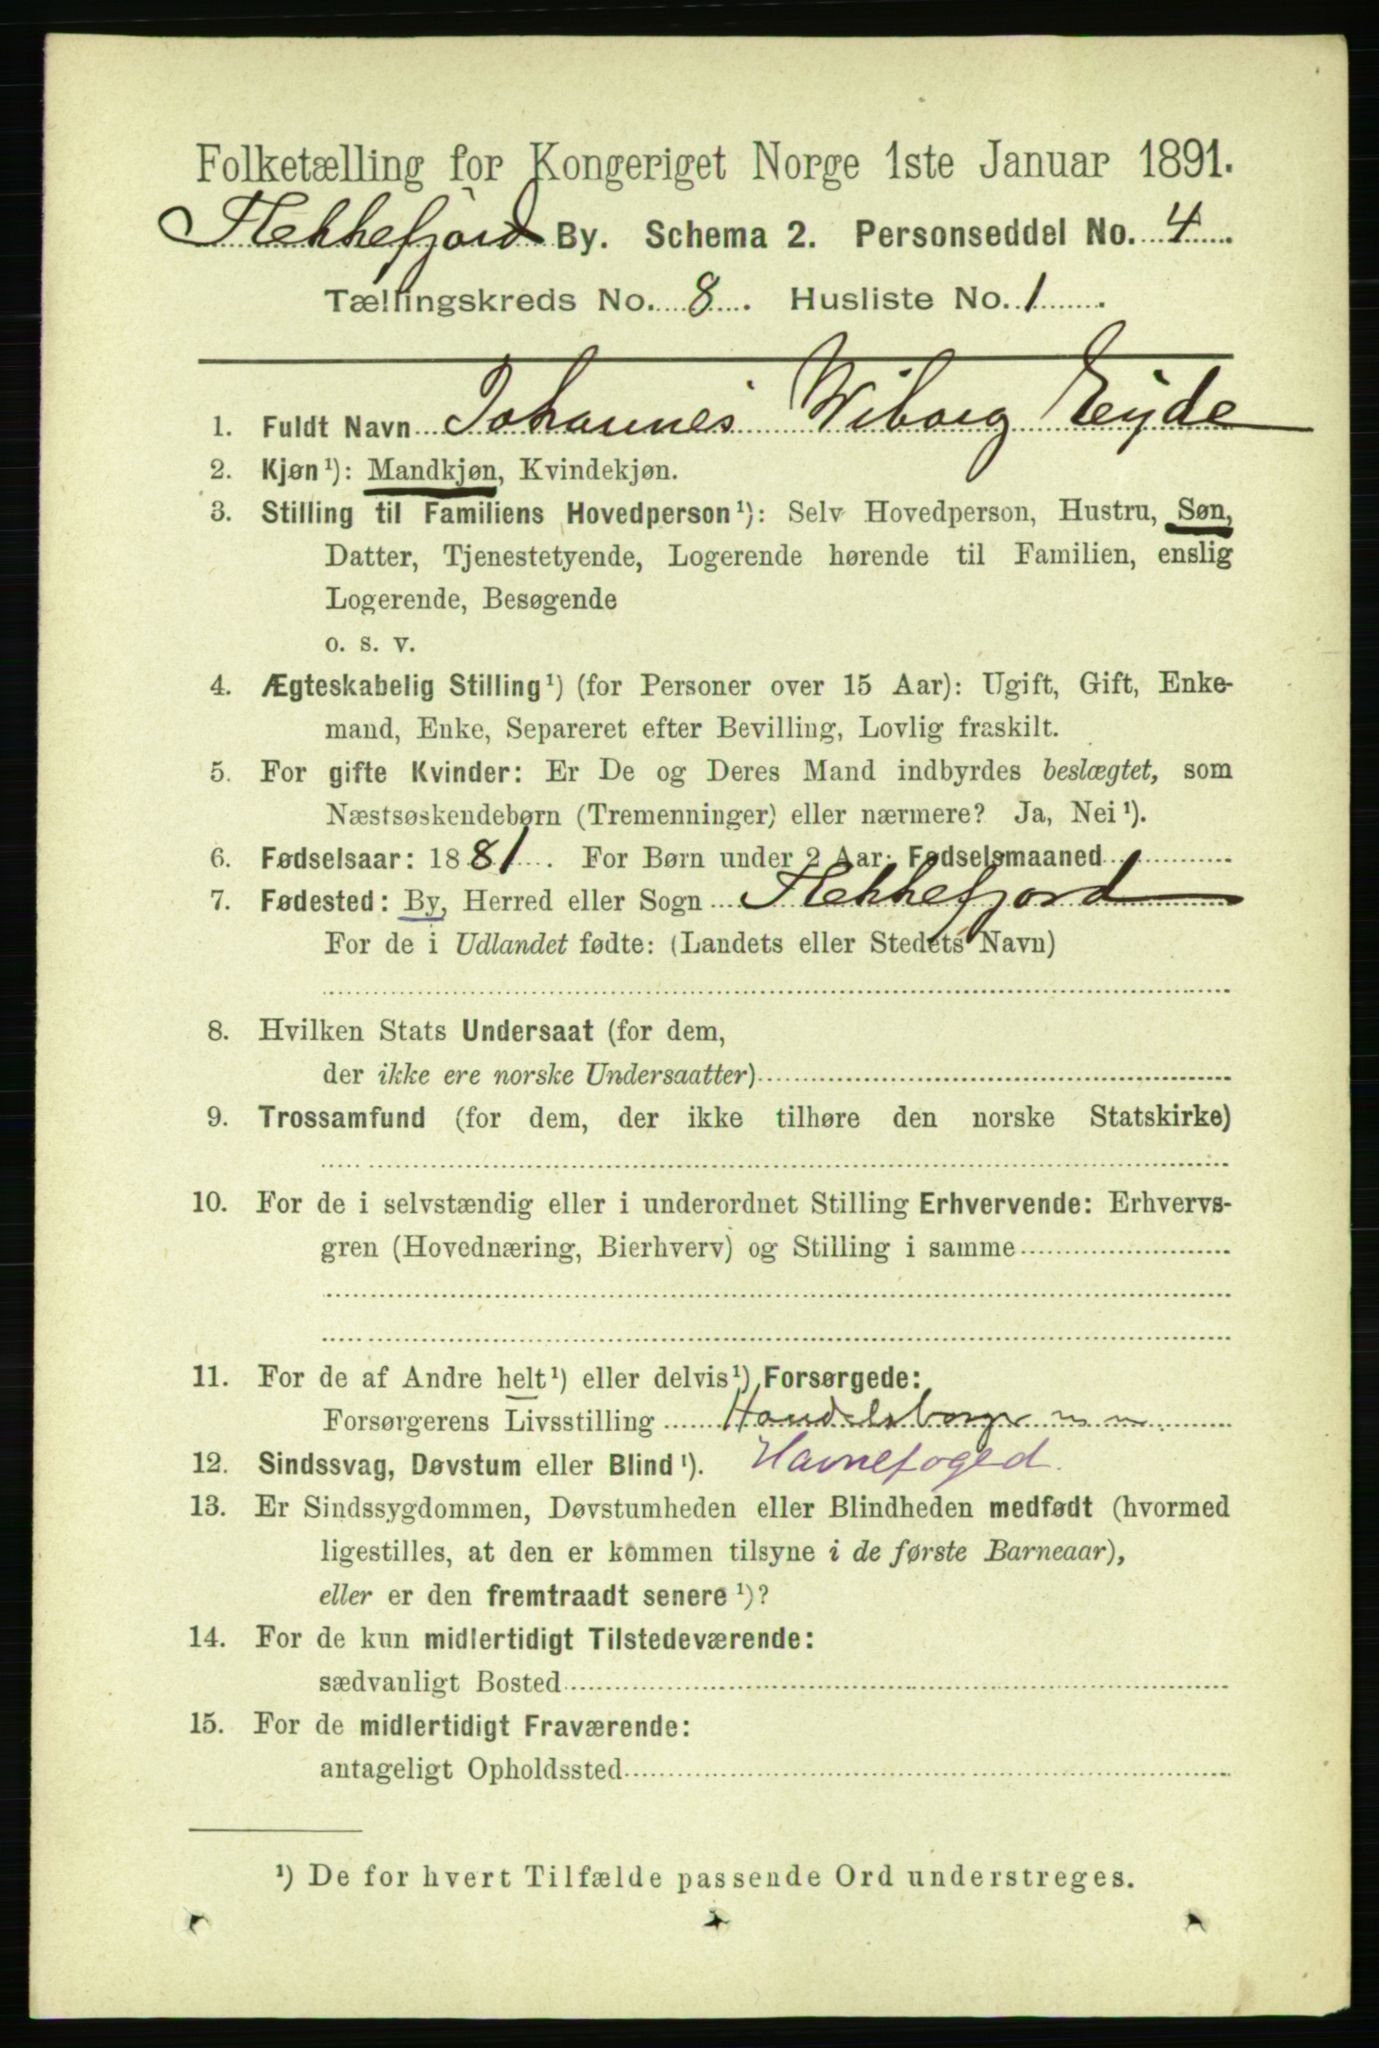 Folketælling for Kongeriget Norge 1ste Januar 1891.
Flekkefjord By. Schema 2. Personseddel No. 4
Tællingskreds No. 8. Husliste No. 1.
1. Fuldt Navn Johannes Wiborg Eyde
2. Kjøn¹): Mandkjøn, Kvindekjøn.
3. Stilling til Familiens Hovedperson¹): Selv Hovedperson, Hustru, Søn,
Datter, Tjenestetyende, Logerende hørende til Familien, enslig
Logerende, Besøgende
o. s. v.
4. Ægteskabelig Stilling¹) (for Personer over 15 Aar): Ugift, Gift, Enke-
mand, Enke, Separeret efter Bevilling, Lovlig fraskilt.
5. For gifte Kvinder: Er De og Deres Mand indbyrdes beslægtet, som
Næstsøskendebørn (Tremenninger) eller nærmere? Ja, Nei¹).
6. Fødselsaar: 1881. For Børn under 2 Aar: Fødselsmaaned
7. Fødested: By, Herred eller Sogn Flekkefjord
For de i Udlandet fødte: (Landets eller Stedets Navn)
8. Hvilken Stats Undersaat (for dem,
der ikke ere norske Undersaatter)
9. Trossamfund (for dem, der ikke tilhøre den norske Statskirke)
10. For de i selvstændig eller i underordnet Stilling Erhvervende: Erhvervs-
gren (Hovednæring, Bierhverv) og Stilling i samme
11. For de af Andre helt¹) eller delvis¹) Forsørgede:
Forsørgerens Livsstilling Handelsborger m. m.
12. Sindssvag, Døvstum eller Blind¹). Havnefoged.
13. Er Sindssygdommen, Døvstumheden eller Blindheden medfødt (hvormed
ligestilles, at den er kommen tilsyne i de første Barneaar),
eller er den fremtraadt senere¹)?
14. For de kun midlertidigt Tilstedeværende:
sædvanligt Bosted
15. For de midlertidigt Fraværende:
antageligt Opholdssted
¹) De for hvert Tilfælde passende Ord understreges.